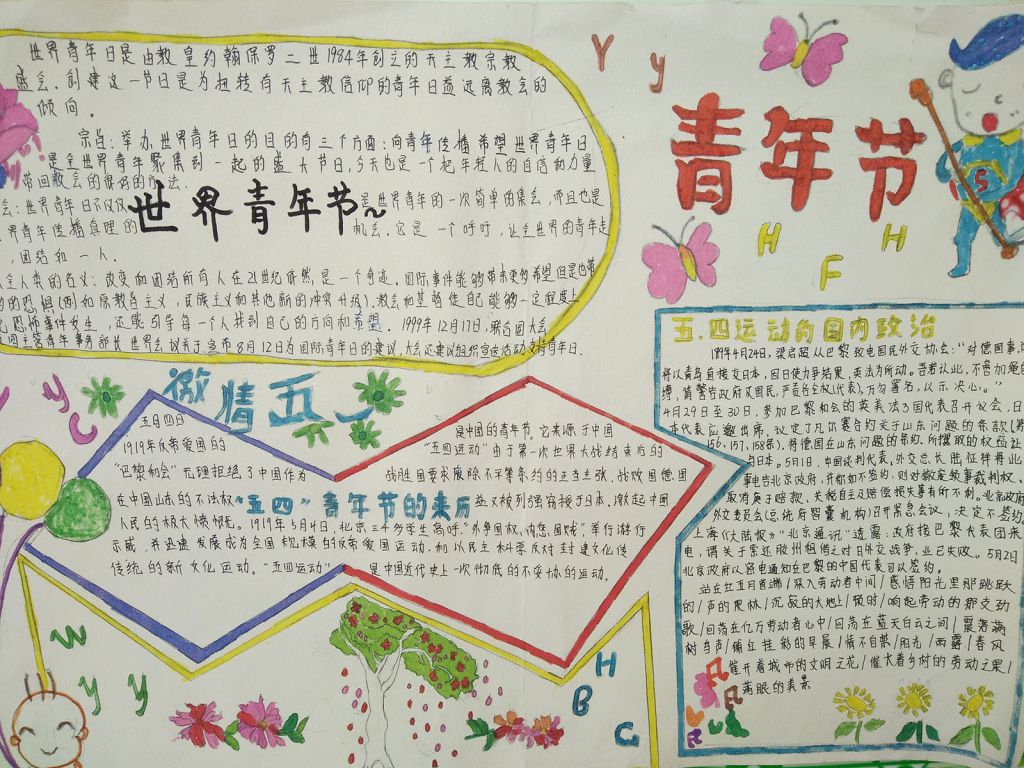 世界青年日是由教皇约翰保罗二世1984年创立的天主教宗教
盛会.创建这一节日是为扭转有天主教信仰的青年日益远离教会的
倾向.
宗旨:举办世界青年日的目的有三个方面:向青年传播希望世界青年日
是全世界青年聚集到一起的盛大节日,今天也是一个把年轻人的自信和力量
带回教会的很好的方法.
会:世界青年日不仅仅 是世界青年的一次简单的集会,而且也是
界青年传播真理的 机会.它是一个呼吁,让全世界的青年走
,团结如一人.
世界青年节~
全人类的名义:改变和团结所有人在21世纪依然,是一个奇迹.国际事件能够带来更多希望但是也带
的恐惧(例如原教旨主义,民族主义和其他新的冲突升级).教会和基督使自己能够一定程度上
恐怖事件发生,还能引导每一个人找到自己的方向和希望.1999年12月17日,联合国大会
主管青年事务部长世界会议关于宣布8月12日为国际青年日的建议.大会还建议组织宣传活动支持青年日.
Y
y
青年节
H
H
F
5
激情五一
y
y
C
五月四日 是中国的青年节,它来源于中国
1919年反帝爱国的 “五四运动”由于第一次世界大战结束后的
“巴黎和会”无理拒绝了中国作为 战胜国要求废除不平等条约的正当主张,战败国德国
在中国山东的不法权 益又被列强容授于日本,激起中国
“五四”青年节的来历
人民的极大愤慨.1919年5月4日,北京三千多学生高呼“外争国权,内惩国贼”,举行游行
示威,并迅速发展成为全国规模的反帝爱国运动.和以民主科学反对封建文化传
统的新文化运动.“五四运动” 是中国近代史上一次彻底的不妥协的运动.
五.四运动的国内政治
1919年4月24日,梁启超从巴黎致电国民外交协会:“对德国事,
将以青岛直接交日本,因日使力争结果,英法为所动.吾若认此,不啻加绳自
缚,请警告政府及国民,严责各全权(代表),万勿署名,以示决心.”
4月29日至30日,参加巴黎和会的英美法3国代表召开议会,日
本代表应邀出席,议定了凡尔赛合约关于山东问题的条款(
156,157,158条),将德国在山东问题的条约,所攫取的权益让
与日本.5月1日,中国谈判代表,外交总长陆征祥将此
事电告北京政府,并称如不签约,则对撤废领事裁判权、
取消庚子赔款、关税自主及赔偿损失等有所不利.北京政府
外交委员会(总统府智囊机构)召开紧急会议,决定不签约,
上海《大陆报》“北京通讯”透露:政府接巴黎代表团来
电,谓关于索还胶州租借之对日外交战争,业已失败.5月2日
北京政府以密电通知在巴黎的中国代表可以签约.
站在红五月首端/深入劳动者中间/感悟阳光里那跳跃
的/声的果林/沉寂的大地上/顿时/响起劳动的那交劲
歌/回荡在亿万劳动者心中/回荡在蓝天白云之间/震荡满
树鸟声/铺红挂彩的早晨/情不自禁/阳光/雨露/春风
催开着城市的文明之花/催大着乡村的劳动之果/
满眼的美景
W
y
y
H
B
G